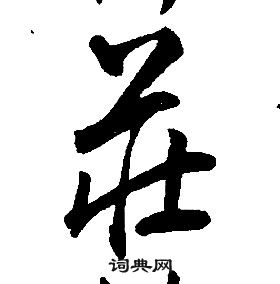 莊
词典网